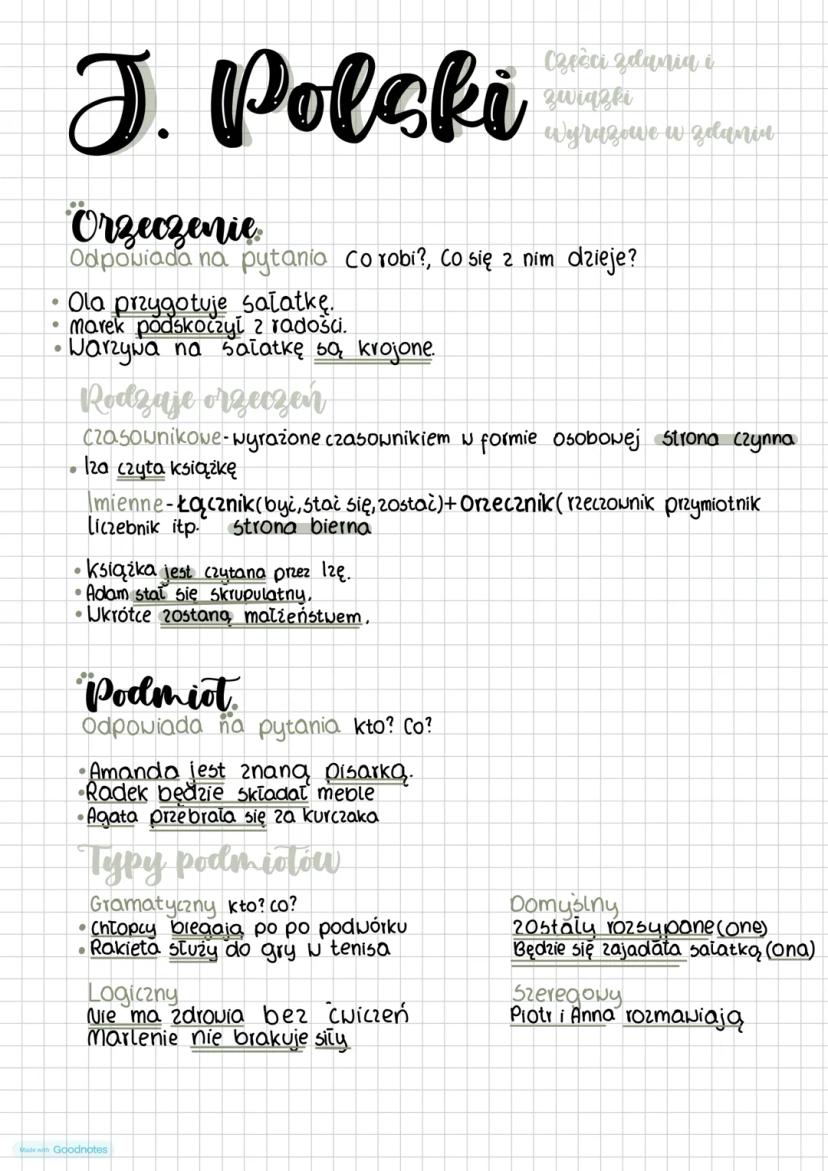 J. Polski
Części zdania i
związki
wyrazowe w zdaniu
Orzeczenie
Odpowiada na pytania Co robi?, Co się z nim dzieje?
• Ola przygotuje sałatkę.
• Marek podskoczył z radości.
• Warzywa na sałatkę są krojone.
Rodzaje orzeczeń
Czasownikowe-wyrażone czasownikiem w formie osobowej strona czynna
• Iza czyta książkę
Imienne-Łącznik(być,stać się,zostać)+Orzecznik(rzeczownik przymiotnik
liczebnik itp. strona bierna
• Książka jest czytana przez Izę.
• Adam stał się skrupulatny.
• Wkrótce zostaną małżeństwem.
Podmiot
Odpowiada na pytania kto? Co?
• Amanda jest znaną pisarką.
• Radek będzie składał meble
• Agata przebrała się za kurczaka
Typy podmiotów
Gramatyczny kto? co?
• Chłopcy biegają po po podwórku
• Rakieta służy do gry w tenisa
Domyślny
Zostały rozsypane(one)
Będzie się zajadała sałatką(ona)
Logiczny
Nie ma zdrowia bez ćwiczeń
Marlenie nie brakuje siły
Szeregowy
Piotr i Anna rozmawiają
Made with Goodnotes